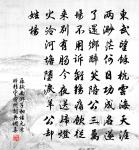 東武望餘杭雲海天涯
兩渺茫何日功成名遂
了還鄉醉笑陪公三萬
場不用訴離觴痛飲從
來別有腸今夜送歸燈
火冷河塘墮淚羊公卻
姓楊
蘇軾南鄉子和楊元素
時移守密州